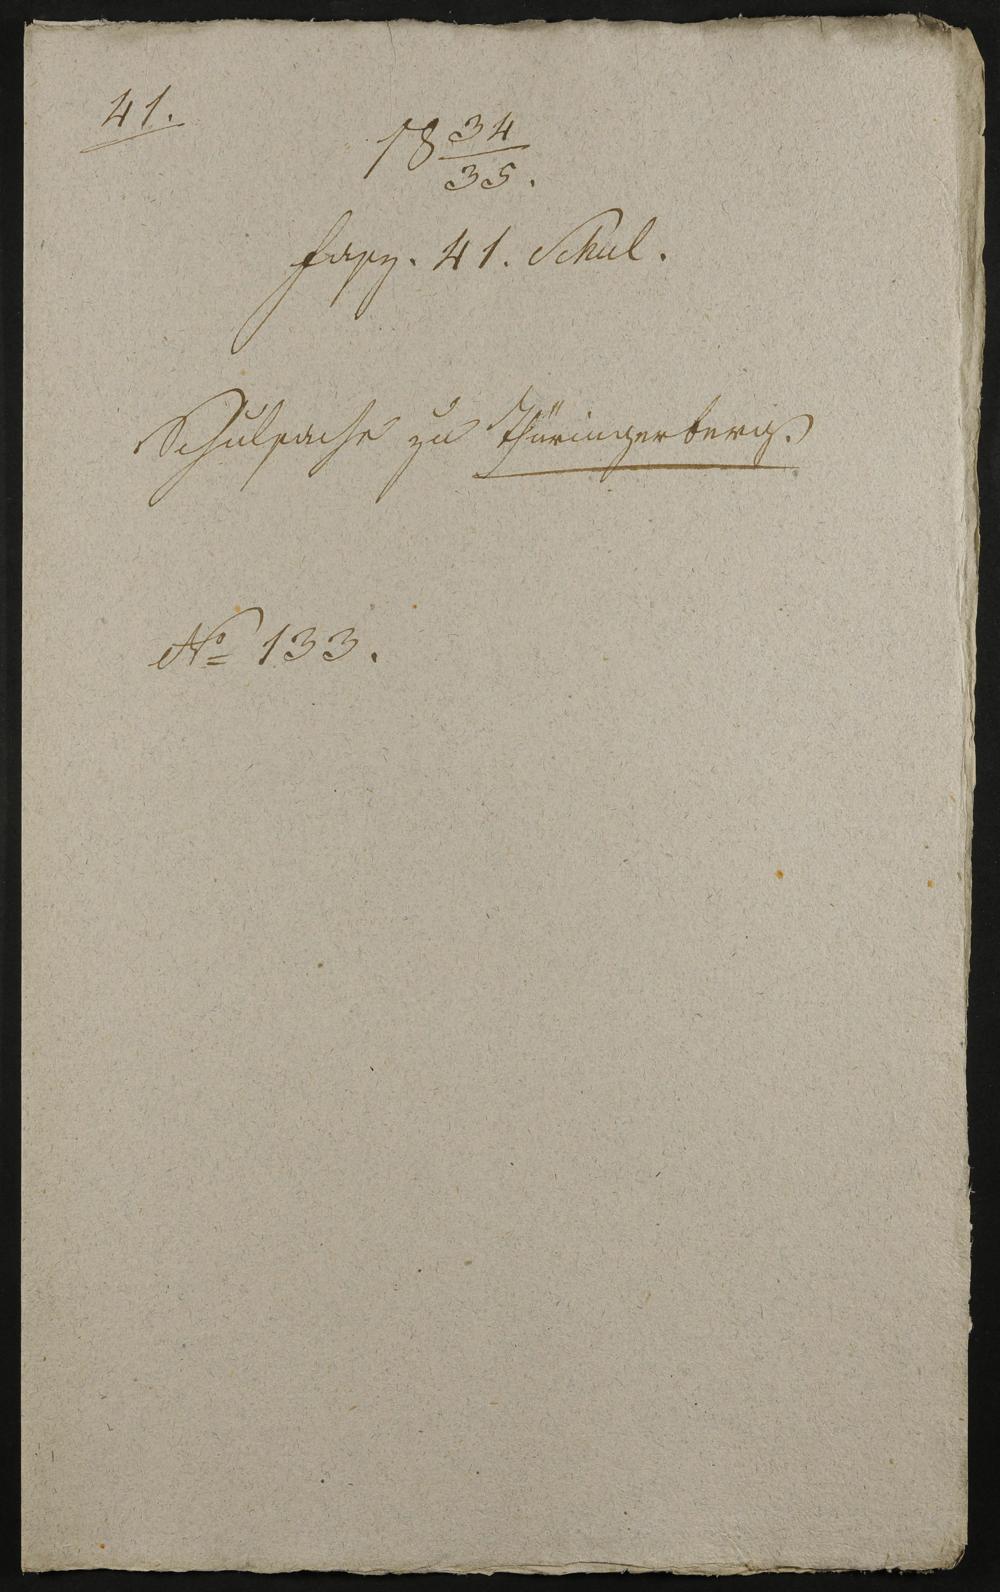 41.
18 34/35.
Fasz. 41. Schul.
Schulsache zu Thüringerberg.
No 133.